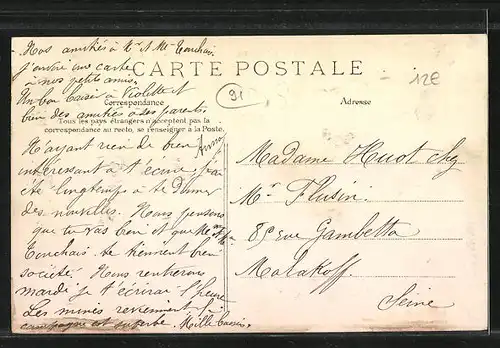 Nos amitiés à Mr et Me Tonchais
J'envoie une carte
à nos petits amis.
Un bon baiser à Violette et
bien des amitiés à ses parents
CARTE POSTALE
91
12E
Correspondance
Adresse
Tous les pays étrangers n'acceptent pas la
correspondance au recto, se renseigner à la Poste.
N'ayant rien de bien
intéressant à t'écrire, j'ai
été longtemps à te donner
des nouvelles. Nous pensons
que tu vas bien et que Me
Tonchais te tiennent bien
société. Nous rentrerons
mardi je t'écrirai l'heure
Les mines reviennent
campagne est superbe. Mille baisers.
Madame Huot chez
Mr Flusin
89 rue Gambetta
Malakoff.
Seine